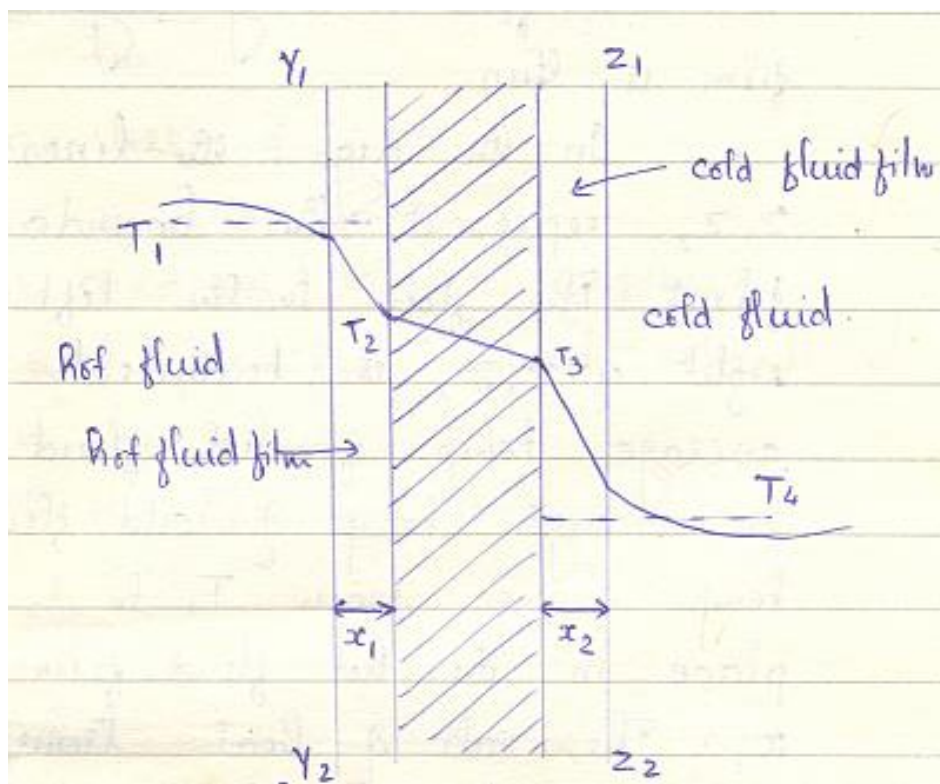 Y1 Z1
cold fluid film
T1
T2 T3
cold fluid
hot fluid
hot fluid film
T4
x1 x2
Y2 Z2